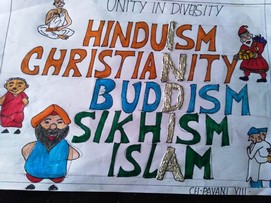 UNITY IN DIVERSITY
HINDUISM
CHRISTIANITY
BUDDISM
SIKHISM
ISLAM
CH-PAVANI VIII